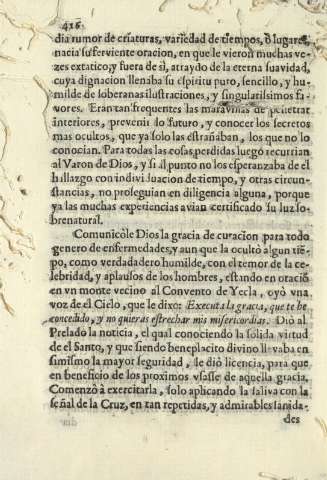 416
dia rumor de criaturas, variedad de tiempos, ò lugares,
nacia su ferviente oracion, en que le vieron muchas ve-
zes extatico, y fuera de sì, atraydo de la eterna suavidad,
cuya dignacion llenaba su espiritu puro, sencillo, y hu-
milde de soberanas ilustraciones, y singularissimos fa-
vores. Eran tan frequentes las maravillas de penetrar
interiores, prevenir lo futuro, y conocer los secretos
mas ocultos, que ya solo las estrañaban, los que no lo
conocian. Para todas las cosas perdidas luego recurrian
al Varon de Dios, y si al punto no los esperanzaba de el
hallazgo con individuacion de tiempo, y otras circun-
stancias, no proseguian en diligencia alguna, porque
ya las muchas experiencias avian certificado su luz so-
brenatural.
Comunicòle Dios la gracia de curacion para todo
genero de enfermedades, y aun que la ocultò algun tiē-
po, como verdadadero humilde, con el temor de la ce-
lebridad, y aplausos de los hombres, estando en oraciō
en vn monte vecino al Convento de Yecla, oyò vna
voz de el Cielo, que le dixo: Executa la gracia, que te he
concedido, y no quieras estrechar mis misericordias. Diò al
Prelado la noticia, el qual conociendo la sòlida virtud
de el Santo, y que siendo beneplacito divino llevaba en
simismo la mayor seguridad, le diò licencia, para que
en beneficio de los proximos vsasse de aquella gracia.
Comenzò à exercitarla, solo aplicando la saliva con la
señal de la Cruz, en tan repetidas, y admirables sanida-
des